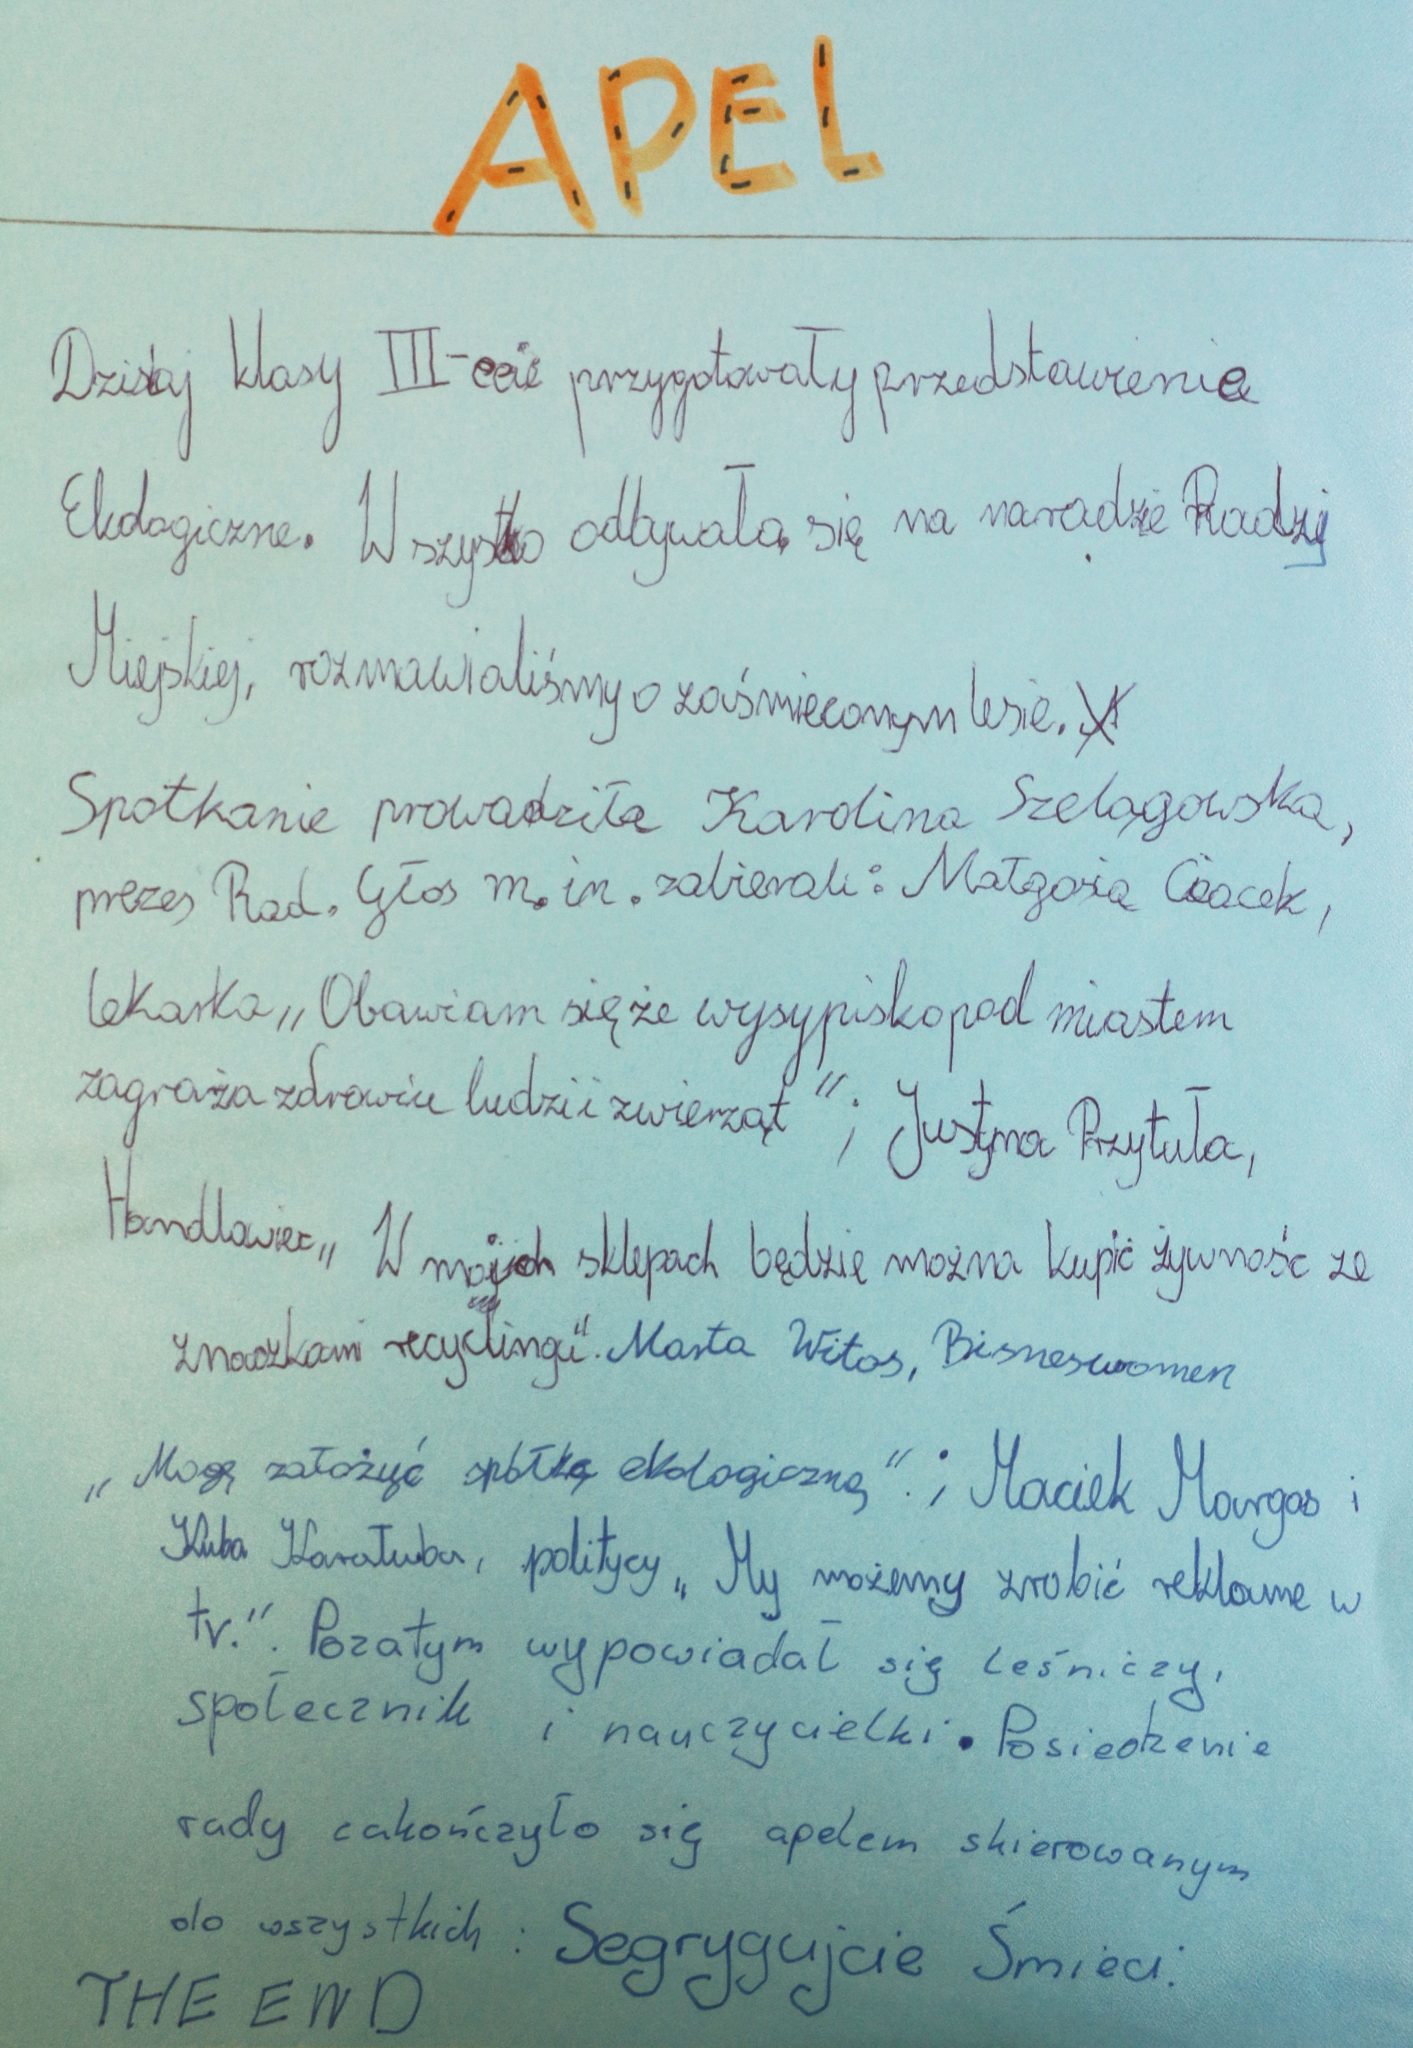 APEL
Dzisiaj klasy III-ecie przygotowały przedstawienie
Ekologiczne. Wszystko odbywało się na naradzie Radzy
Miejskiej, rozmawialiśmy o zaśmieconym lesie.
Spotkanie prowadziła Karolina Szelągowska,
prezes Rad. Głos m.in. zabierali: Małgosia Ciacek,
lekarka „Obawiam się że wysypisko pod miastem
zagraża zdrowiu ludzi i zwierząt"; Justyna Przytuła,
Handlowiec „W moich sklepach będzie można kupić żywność ze
znaczkami recyclingu". Marta Witos, Bisneswomen
„Mogę założyć spółkę ekologiczną".; Maciek Margas i
Kuba Karałuba, politycy „My możemy zrobić reklame w
tv.". Pozatym wypowiadał się leśniczy,
społecznik i nauczycielki. Posiedzenie
rady zakończyło się apelem skierowanym
do wszystkich: Segrygujcie Śmieci.
THE END